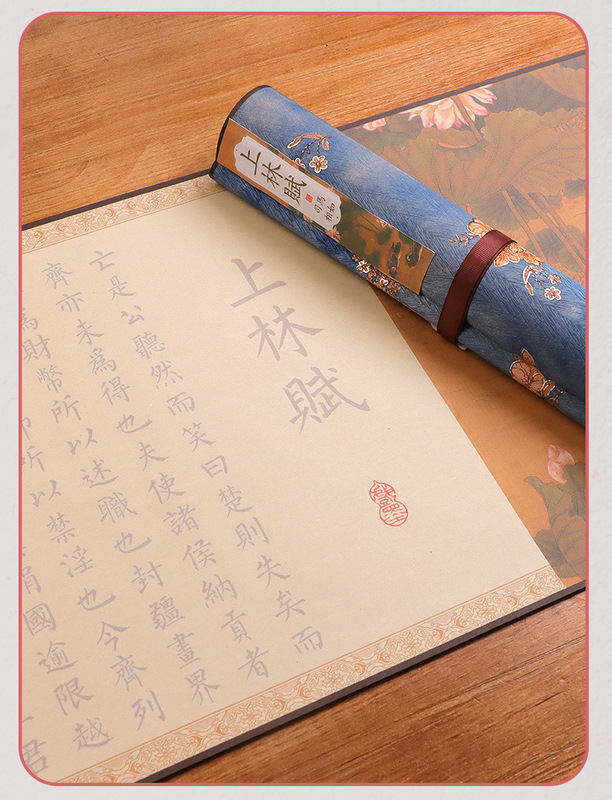 上林賦
司馬相如
上林賦
亡是公聽然而笑曰楚則失矣而
齊亦未為得也夫使諸侯納貢者
為財幣所以述職也封疆畫界
所以禁淫也今齊列
國逾限越
君